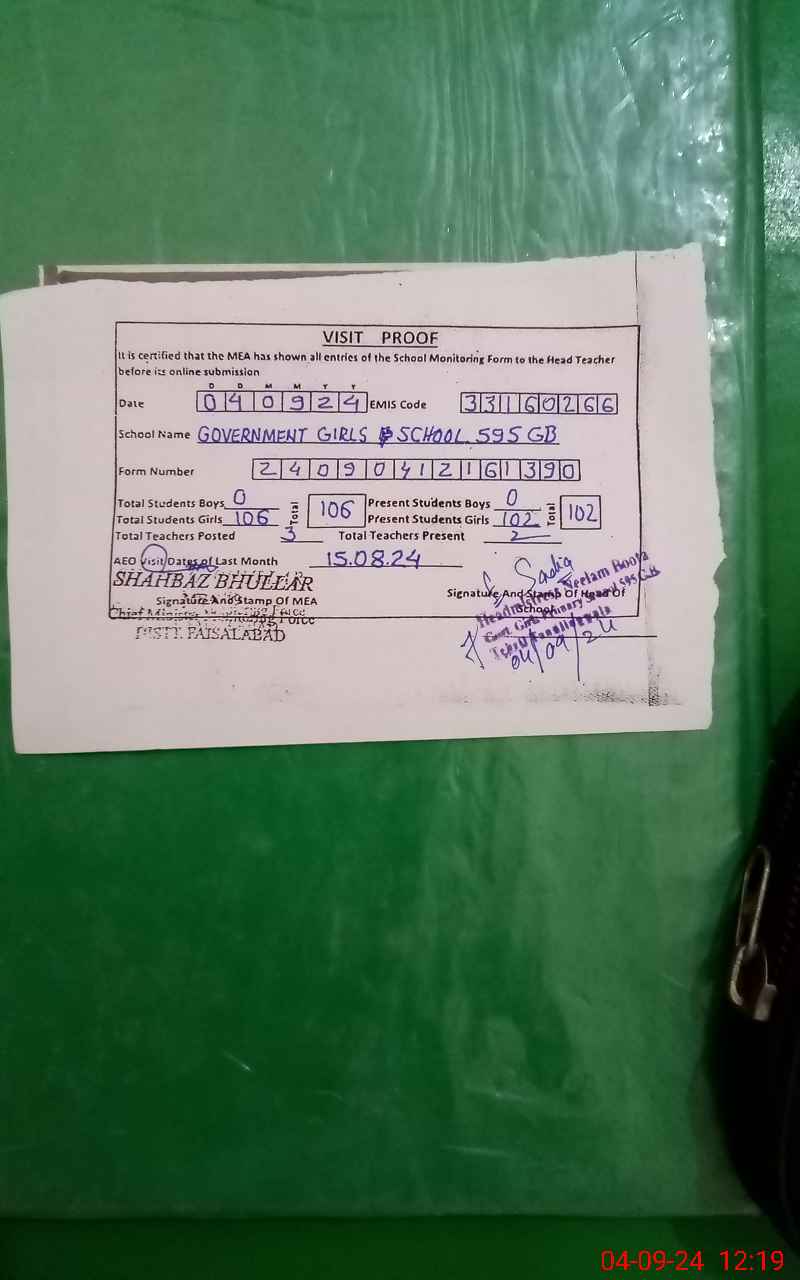 VISIT PROOF
It is certified that the MEA has shown all entries of the School Monitoring Form to the Head Teacher
before its online submission
D D M M Y Y
Date 040924 EMIS Code 33160266
School Name GOVERNMENT GIRLS P SCHOOL 595 GB
Form Number 24090412161390
Total Students Boys 0 Total 106 Present Students Boys 0 Total 102
Total Students Girls 106 Present Students Girls 102
Total Teachers Posted 3 Total Teachers Present 2
AEO Visit Dates of Last Month 15.08.24
SHAHBAZ BHULLAR
Signature And Stamp Of MEA
Chief Minister Monitoring Force
DISTT. FAISALABAD
Sadia
Signature And Stamp Of Head Of
School
Headmistress Neelam Boota
Govt. Girls Primary School 595 G.B
Tehsil Tandlianwala
04/09/24
04-09-24 12:19